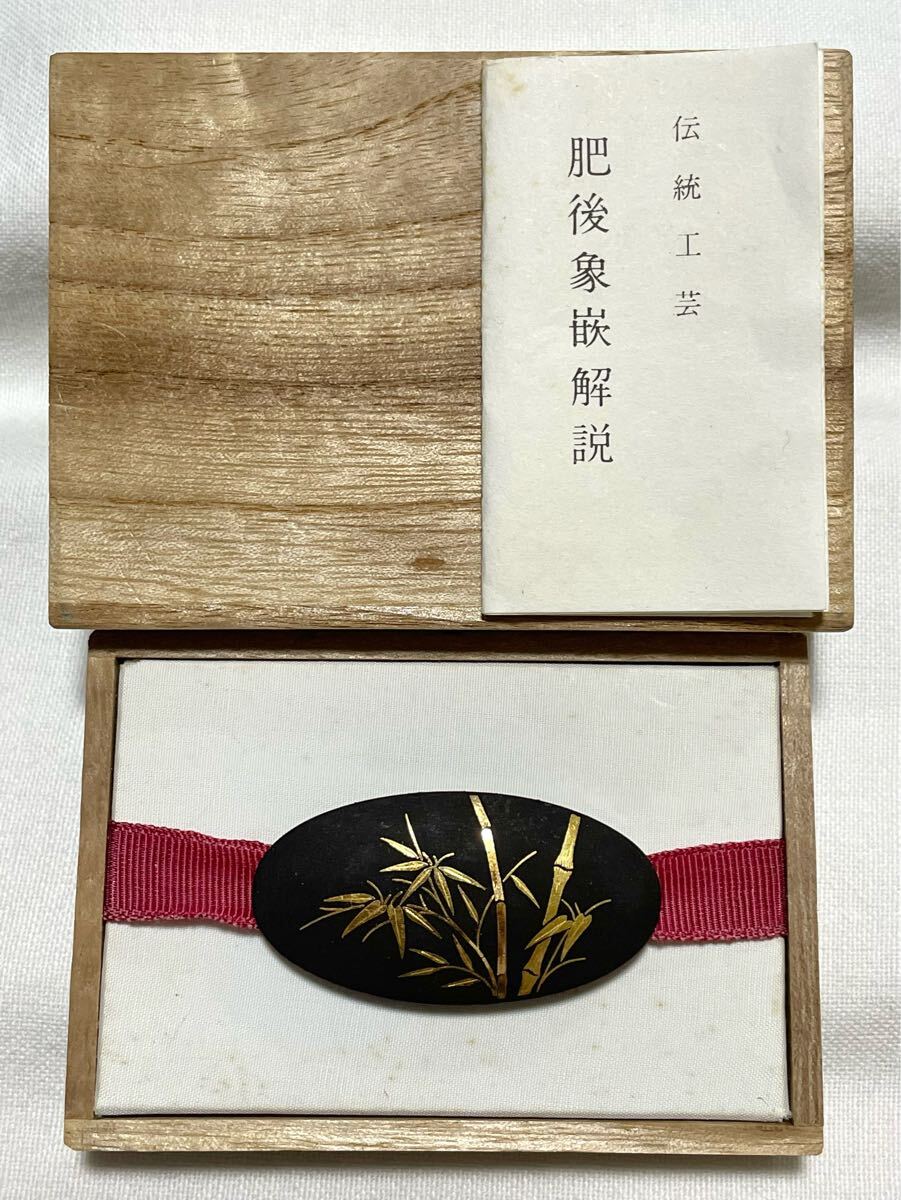 伝統工芸
肥後象嵌解説